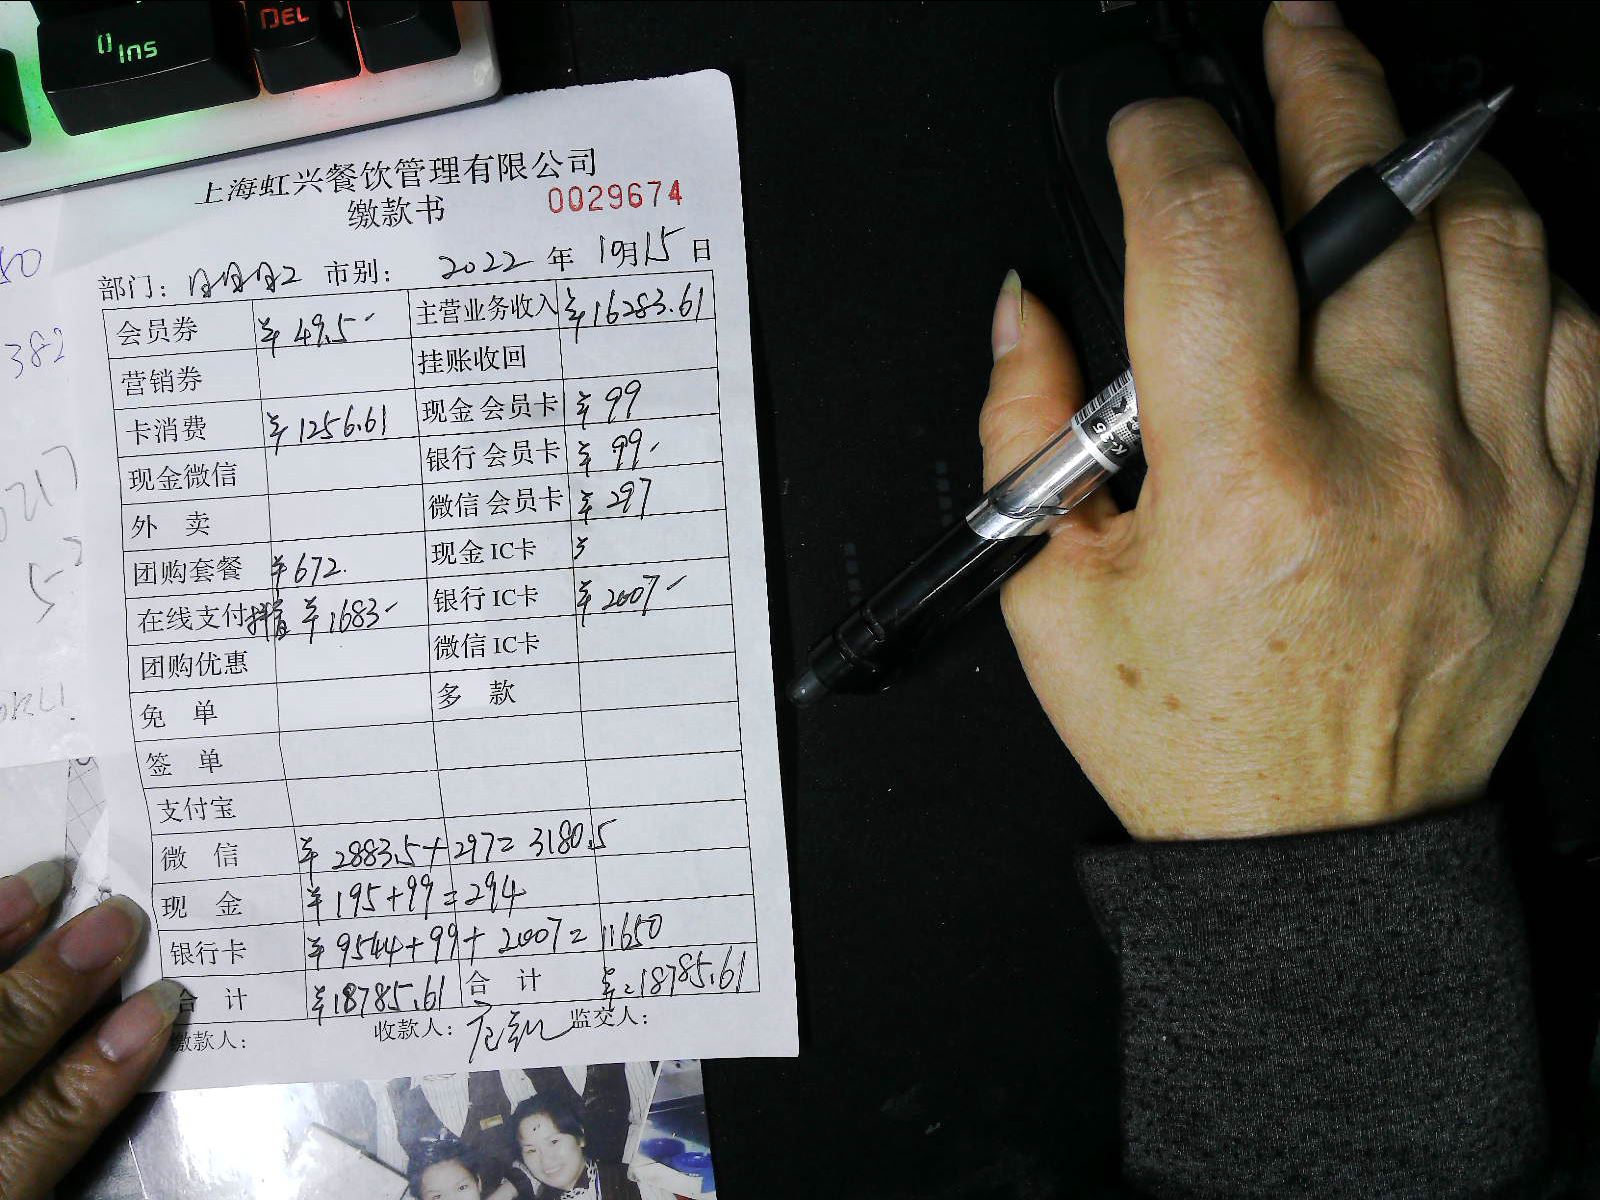 Ins
DEL
上海虹兴餐饮管理有限公司
缴款书
0029674
部门: 市别: 2022 年 10月15日
会员券 ¥49.5- 主营业务收入 ¥16283.61
营销券 挂账收回
卡消费 ¥1256.61 现金会员卡 ¥99
现金微信 银行会员卡 ¥99-
外 卖 微信会员卡 ¥297
团购套餐 ¥672. 现金IC卡 ¥
在线支付 ¥1683- 银行IC卡 ¥2007-
团购优惠 微信IC卡
免 单 多 款
签 单
支付宝
微 信 ¥2883.5+297=3180.5
现 金 ¥195+99=294
银行卡 ¥9544+99+2007=11650
合 计 ¥18785.61 合 计 ¥=18785.61
缴款人: 收款人: 监交人:
50
382
0217
5-2
K-35